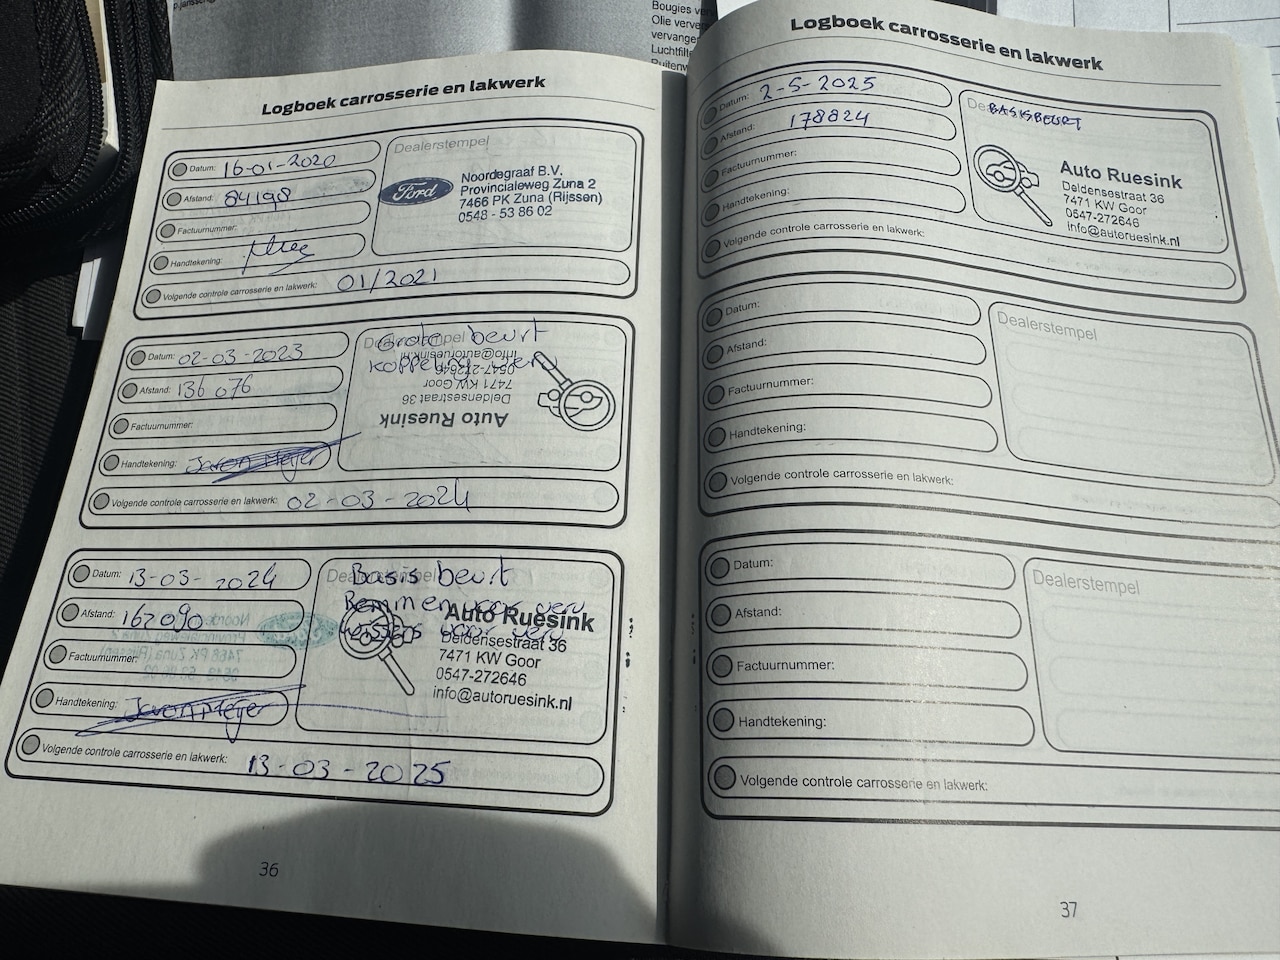 p.janssen@
Bougies
Olie
Luchtfilt
Logboek carrosserie en lakwerk
Datum: 16-01-2020
Afstand: 84198
Factuurnummer:
Handtekening:
Volgende controle carrosserie en lakwerk: 01/2021
Dealerstempel
Ford
Noordegraaf B.V.
Provincialeweg Zuna 2
7466 PK Zuna (Rijssen)
0548 - 53 86 02
Datum: 02-03-2023
Afstand: 136 076
Factuurnummer:
Handtekening: Jaron Meijer
Volgende controle carrosserie en lakwerk: 02-03-2024
Dealerstempel
Grote beurt
koppeling verv
Auto Ruesink
Deldensestraat 36
7471 KW Goor
0547-272646
info@autoruesink.nl
Datum: 13-03-2024
Afstand: 162090
Factuurnummer:
Handtekening: Jaron Meijer
Volgende controle carrosserie en lakwerk: 13-03-2025
Dealerstempel
Basis beurt
Remmen voor verv
voor verv
Auto Ruesink
Deldensestraat 36
7471 KW Goor
0547-272646
info@autoruesink.nl
36
Logboek carrosserie en lakwerk
Datum: 2-5-2025
Afstand: 178824
Factuurnummer:
Handtekening:
Volgende controle carrosserie en lakwerk:
BASISBEURT
Auto Ruesink
Deldensestraat 36
7471 KW Goor
0547-272646
info@autoruesink.nl
Datum:
Afstand:
Factuurnummer:
Handtekening:
Volgende controle carrosserie en lakwerk:
Dealerstempel
Datum:
Afstand:
Factuurnummer:
Handtekening:
Volgende controle carrosserie en lakwerk:
Dealerstempel
37